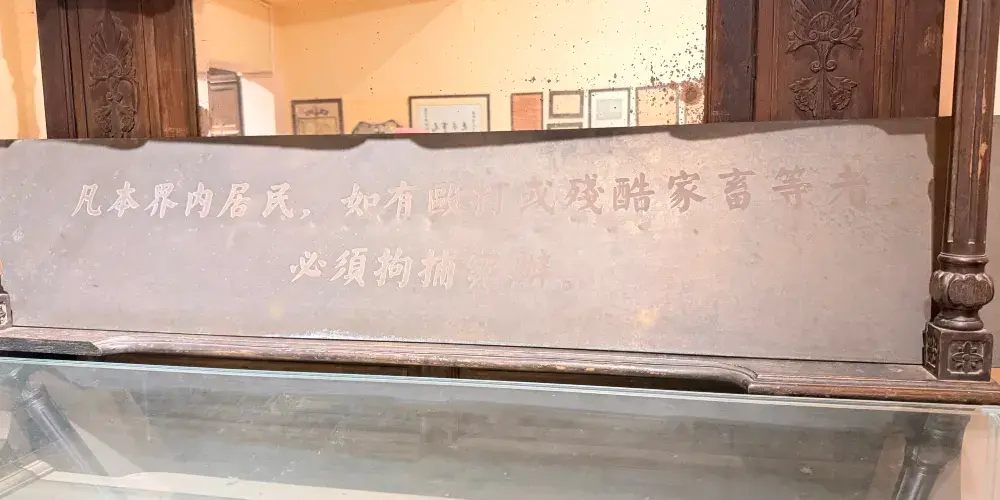 凡本界内居民，如有毆或殘酷家畜等者
必須拘捕辦。